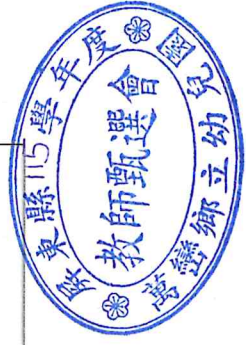 屏東縣115學年度
萬巒鄉立幼兒園
教師甄選會